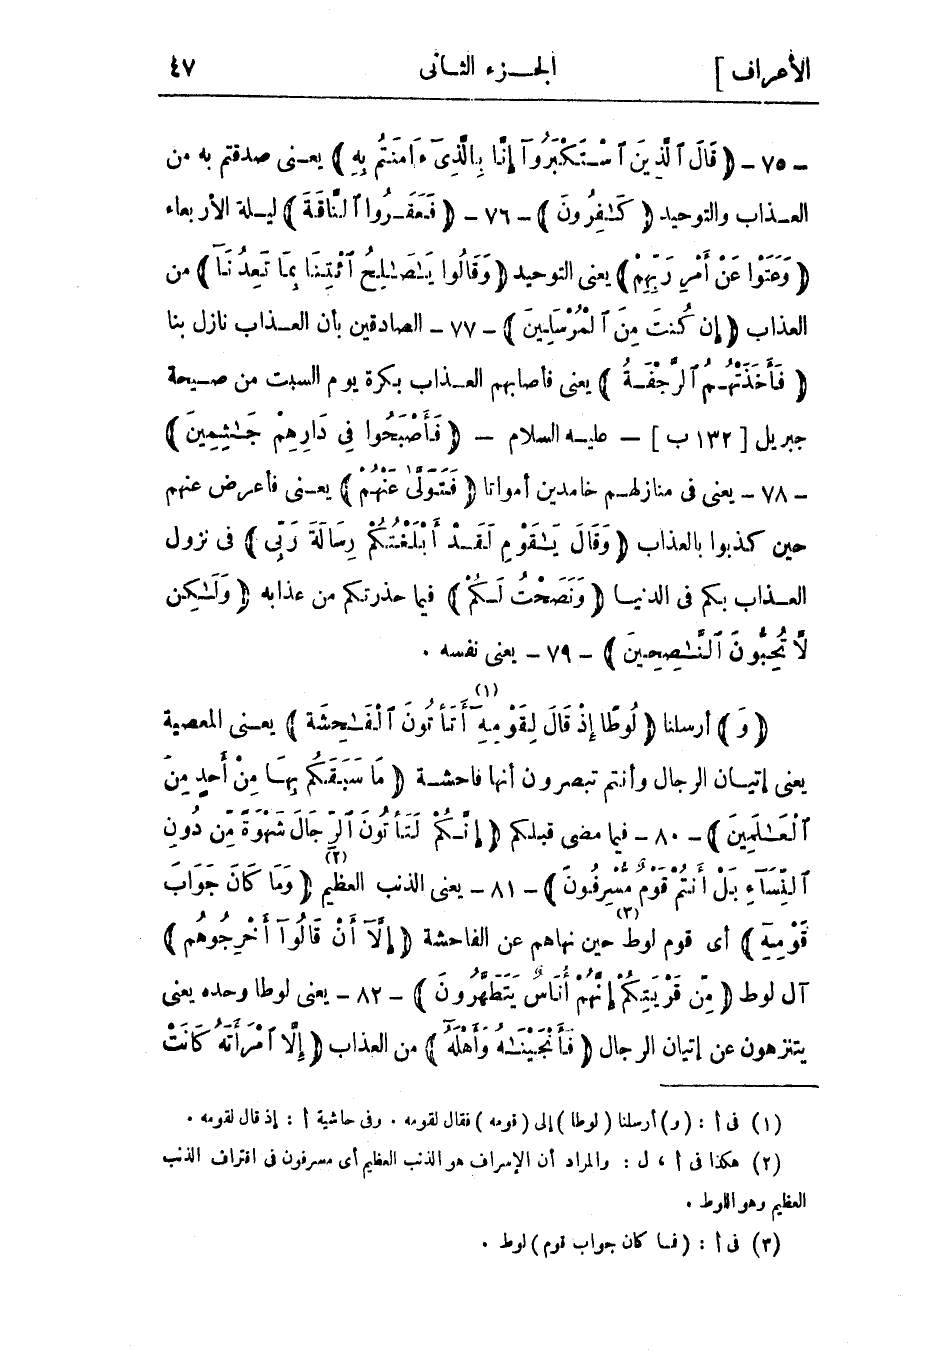 الأعراف ] الجـزء الثـانى ٤٧
ــ ٧٥ ــ ﴿ قَالَ ٱلَّذِينَ ٱسْتَكْبَرُوٓا۟ إِنَّا بِٱلَّذِىٓ ءَامَنتُم بِهِ ﴾ يعـنى صدقتم به من
العـذاب والتوحيد ﴿ كَـٰفِرُونَ ﴾ ــ ٧٦ ــ ﴿ فَعَقَـرُوا ٱلنَّاقَةَ ﴾ ليـلة الأربعاء
﴿ وَعَتَوْا عَنْ أَمْرِ رَبِّهِمْ ﴾ يعنى التوحيد ﴿ وَقَالُوا يَـٰصَـٰلِحُ ٱئْتِنَا بِمَا تَعِدُنَآ ﴾ من
العذاب ﴿ إِن كُنتَ مِنَ ٱلْمُرْسَلِينَ ﴾ ــ ٧٧ ــ الصادقين بأن العـذاب نازل بنا
﴿ فَأَخَذَتْهُـمُ ٱلرَّجْفَـةُ ﴾ يعنى فأصابهم العـذاب بكرة يوم السبت من صـيحة
جبريل [ ١٣٢ ب ] ــ عليـه السلام ــ ﴿ فَأَصْبَحُوا فِى دَارِهِمْ جَـٰثِمِينَ ﴾
ــ ٧٨ ــ يعنى فى منازلهـم خامدين أمواتا ﴿ فَتَوَلَّىٰ عَنْهُمْ ﴾ يعـنى فأعرض عنهم
حين كذبوا بالعذاب ﴿ وَقَالَ يَـٰقَوْمِ لَقَـدْ أَبْلَغْتُكُمْ رِسَالَةَ رَبِّى ﴾ فى نزول
العـذاب بكم فى الدنيـا ﴿ وَنَصَحْتُ لَـكُمْ ﴾ فيما حذرتكم من عذابه ﴿ وَلَـٰكِن
لَّا تُحِبُّونَ ٱلنَّـٰصِحِينَ ﴾ ــ ٧٩ ــ يعنى نفسه .
﴿ وَ ﴾ أرسلنا ﴿ لُوطًا إِذْ قَالَ لِقَوْمِهِ (١) أَتَأْتُونَ ٱلْفَـٰحِشَةَ ﴾ يعـنى المعصية
يعنى إتيـان الرجال وأنتم تبصرون أنها فاحشـة ﴿ مَا سَبَقَكُم بِهَـا مِنْ أَحَدٍ مِنَ
ٱلْعَـٰلَمِينَ ﴾ ــ ٨٠ ــ فيما مضى قبلكم ﴿ إِنَّـكُمْ لَتَأْتُونَ ٱلرِّجَالَ شَهْوَةً مِّن دُونِ
ٱلنِّسَآءِ بَلْ أَنتُمْ قَوْمٌ مُّسْرِفُونَ ﴾ ــ ٨١ ــ يعنى الذنب العظيم (٢) ﴿ وَمَا كَانَ جَوَابَ
قَوْمِهِٓ ﴾ أى قوم لوط (٣) حين نهاهم عن الفاحشة ﴿ إِلَّآ أَنْ قَالُوٓا أَخْرِجُوهُم ﴾
آل لوط ﴿ مِّن قَرْيَتِكُمْ إِنَّهُمْ أُنَاسٌ يَتَطَهَّرُونَ ﴾ ــ ٨٢ ــ يعنى لوطا وحده يعنى
يتنزهون عن إتيان الرجال ﴿ فَأَنْجَيْنَـٰهُ وَأَهْلَهُٓ ﴾ من العذاب ﴿ إِلَّا ٱمْرَأَتَهُ كَانَتْ
(١) فى أ : (و) أرسلنا (لوطا) إلى (قومه) فقال لقومه . وفى حاشية أ : إذ قال لقومه .
(٢) هكذا فى أ ، ل : والمراد أن الإسراف هو الذنب العظيم أى مسرفون فى اقتراف الذنب
العظيم وهو اللوط .
(٣) فى أ : (فما كان جواب قوم) لوط .